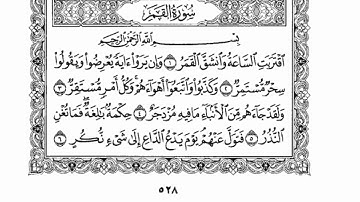 سُورَةُ القَمَرِ
بِسْمِ اللَّهِ الرَّحْمَٰنِ الرَّحِيمِ
ٱقْتَرَبَتِ ٱلسَّاعَةُ وَٱنشَقَّ ٱلْقَمَرُ ١ وَإِن يَرَوْا۟ ءَايَةً يُعْرِضُوا۟ وَيَقُولُوا۟
سِحْرٌ مُّسْتَمِرٌّ ٢ وَكَذَّبُوا۟ وَٱتَّبَعُوٓا۟ أَهْوَآءَهُمْ وَكُلُّ أَمْرٍ مُّسْتَقِرٌّ ٣
وَلَقَدْ جَآءَهُم مِّنَ ٱلْأَنۢبَآءِ مَا فِيهِ مُزْدَجَرٌ ٤ حِكْمَةٌۢ بَٰلِغَةٌ فَمَا تُغْنِ
ٱلنُّذُرُ ٥ فَتَوَلَّ عَنْهُمْ يَوْمَ يَدْعُ ٱلدَّاعِ إِلَىٰ شَىْءٍ نُّكُرٍ ٦
٥٢٨